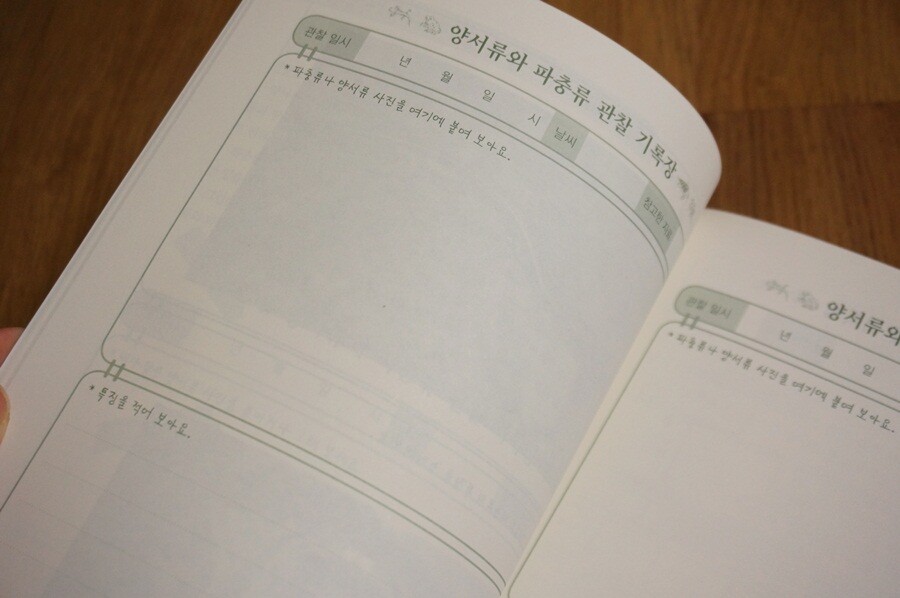 양서류와 파충류 관찰 기록장
관찰 일시 년 월 일 시 날씨 참고한 자료
* 파충류나 양서류 사진을 여기에 붙여 보아요.
* 특징을 적어 보아요.
양서류와
관찰 일시 년 월 일
* 파충류나 양서류 사진을 여기에 붙여 보아요.